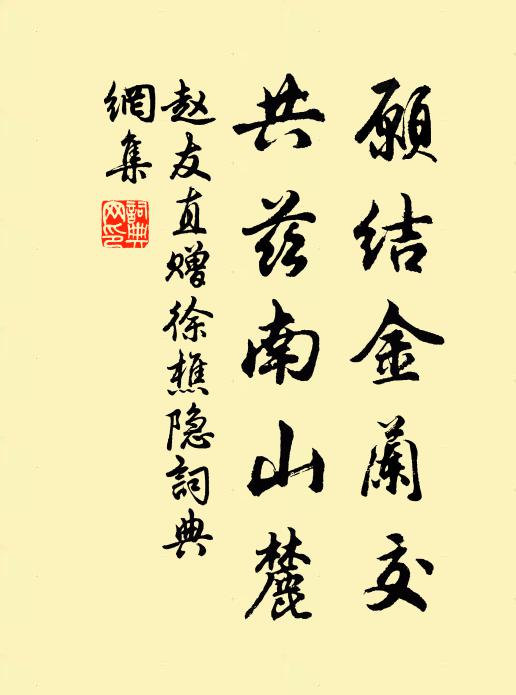 願结金蘭交
共兹南山麓
赵友直赠徐樵隐詞典
網集
詞典
网印